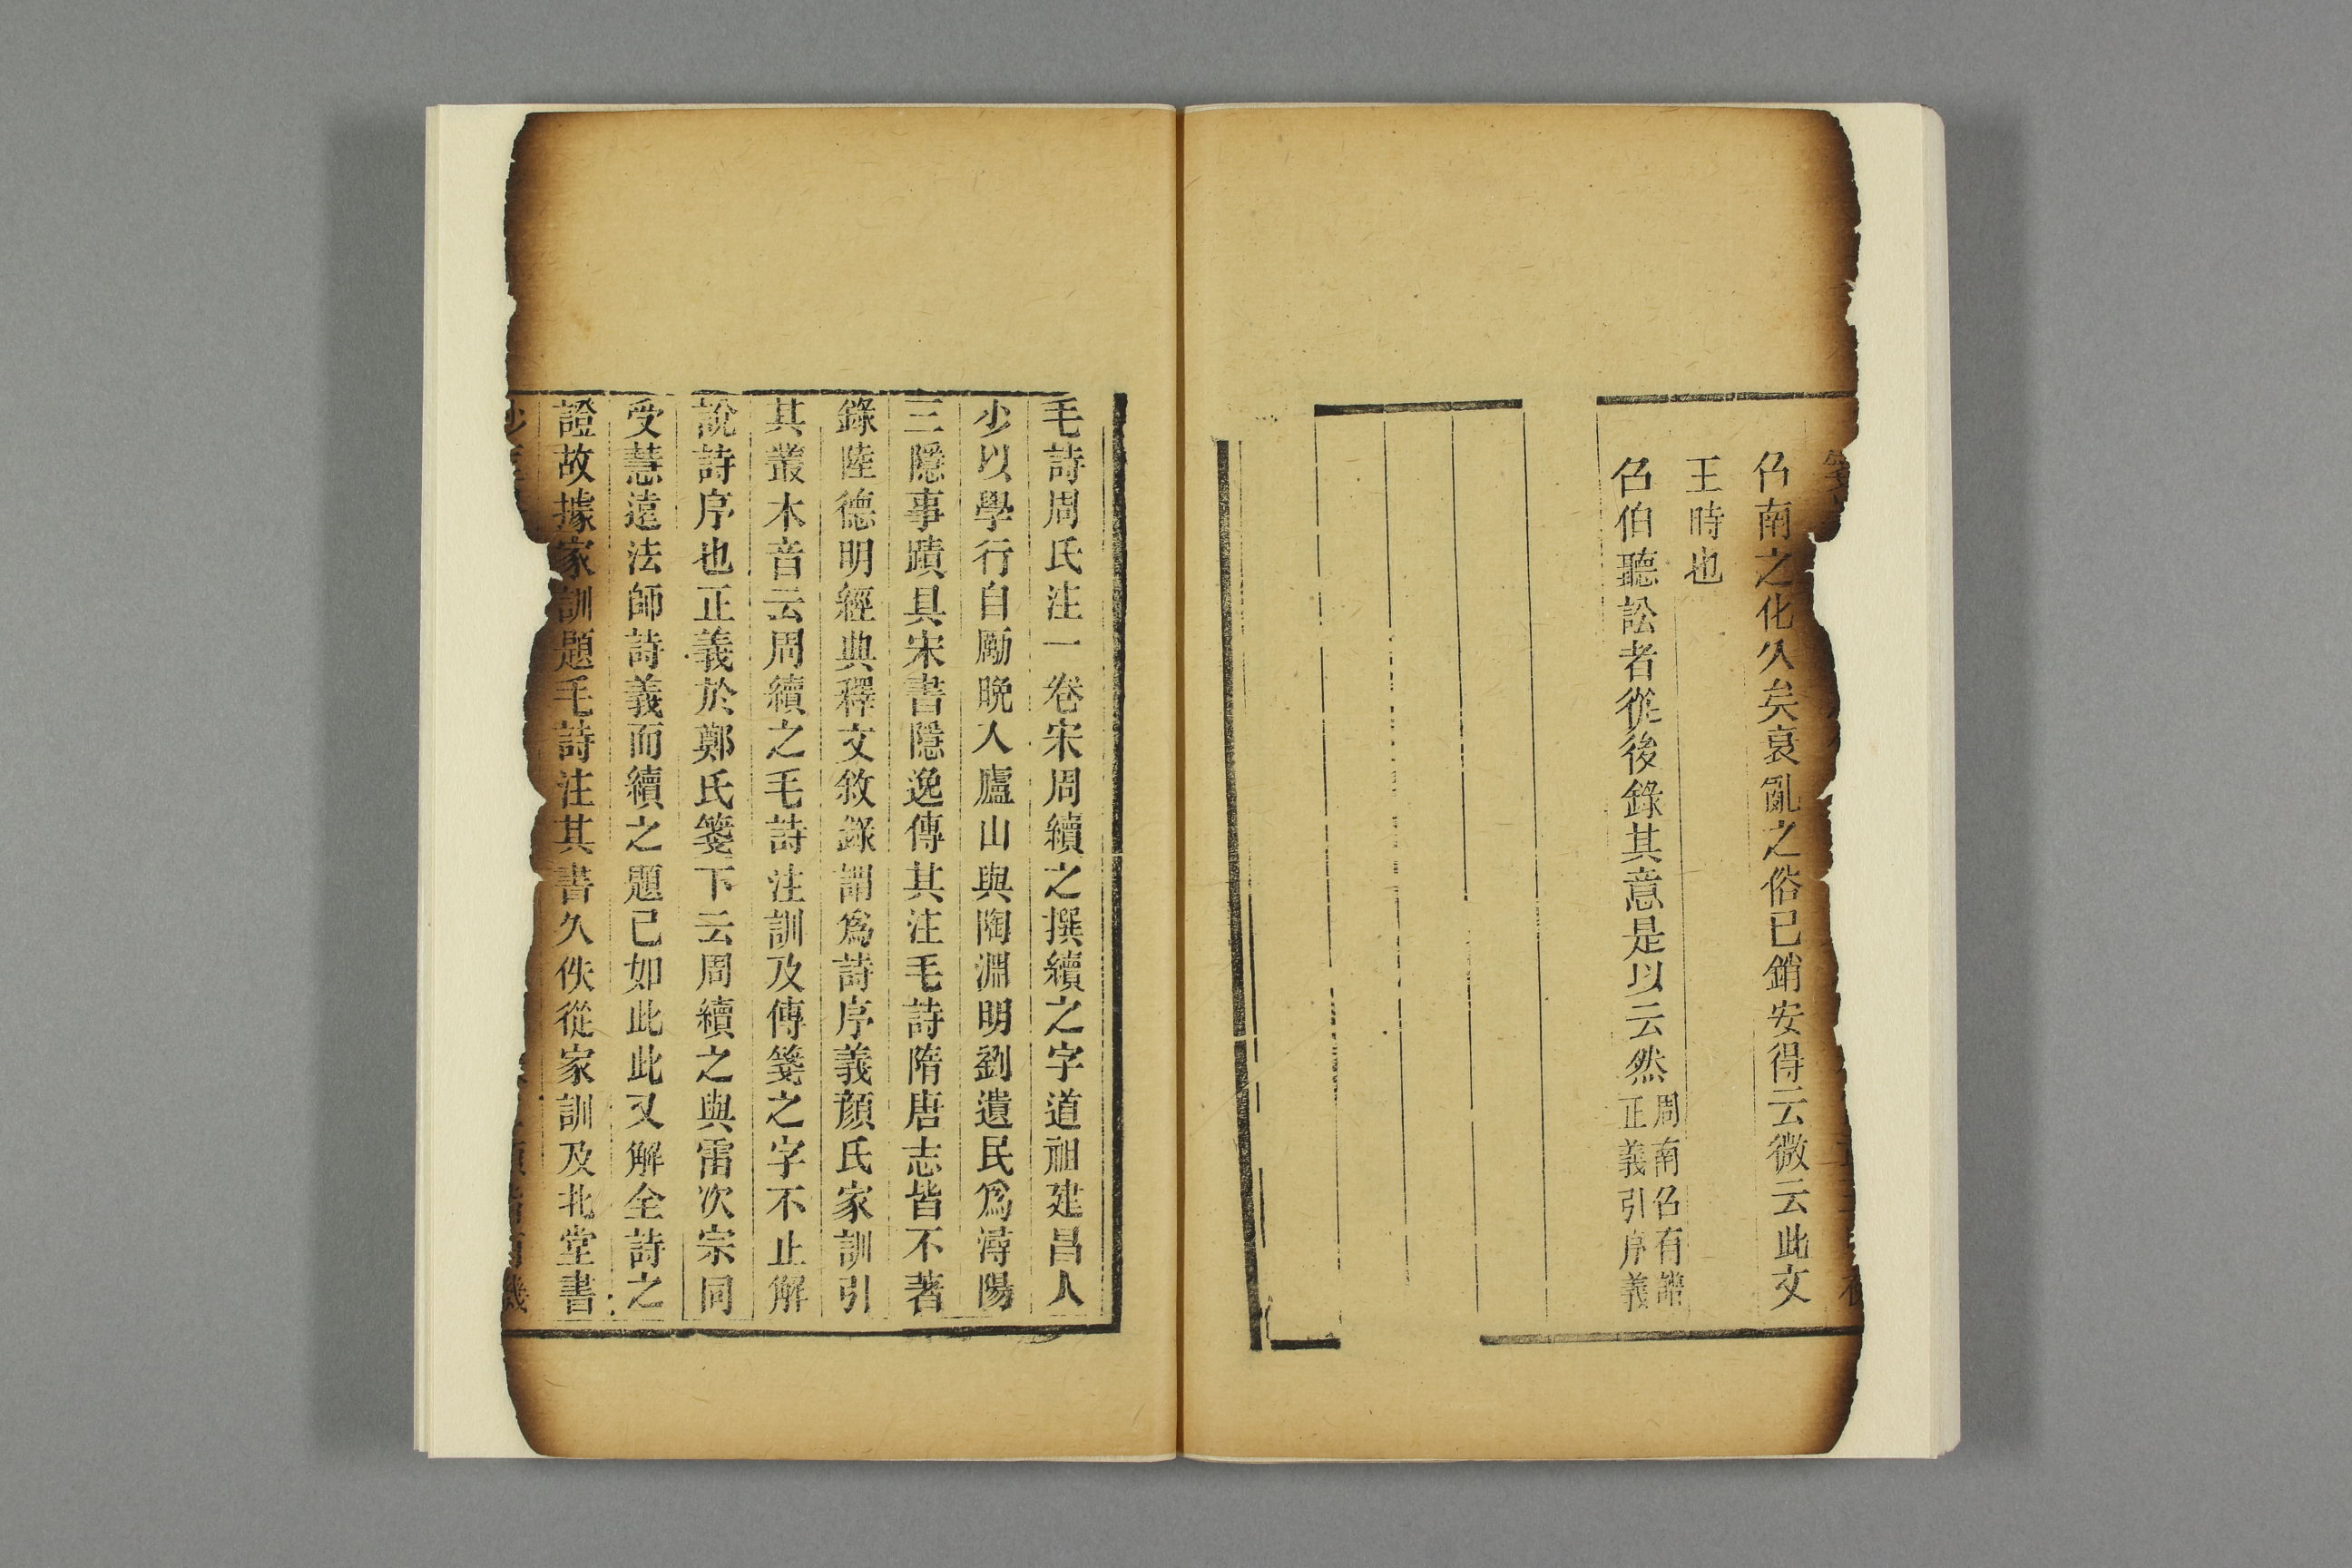 召南之化久矣衰亂之俗已銷安得云微云此文
王時也
召伯聽訟者從後錄其意是以云然周南召有辯
正義引序義
毛詩周氏注一卷宋周續之撰續之字道祖建昌人
少以學行自勵晚入廬山與陶淵明劉遺民爲潯陽
三隱事蹟具宋書隱逸傳其注毛詩隋唐志皆不著
錄陸德明經典釋文敘錄謂爲詩序義顏氏家訓引
其叢木音云周續之毛詩注訓及傳箋之字不止解
說詩序也正義於鄭氏箋下云周續之與雷次宗同
受慧遠法師詩義而續之題已如此此又解全詩之
證故據家訓題毛詩注其書久佚從家訓及北堂書